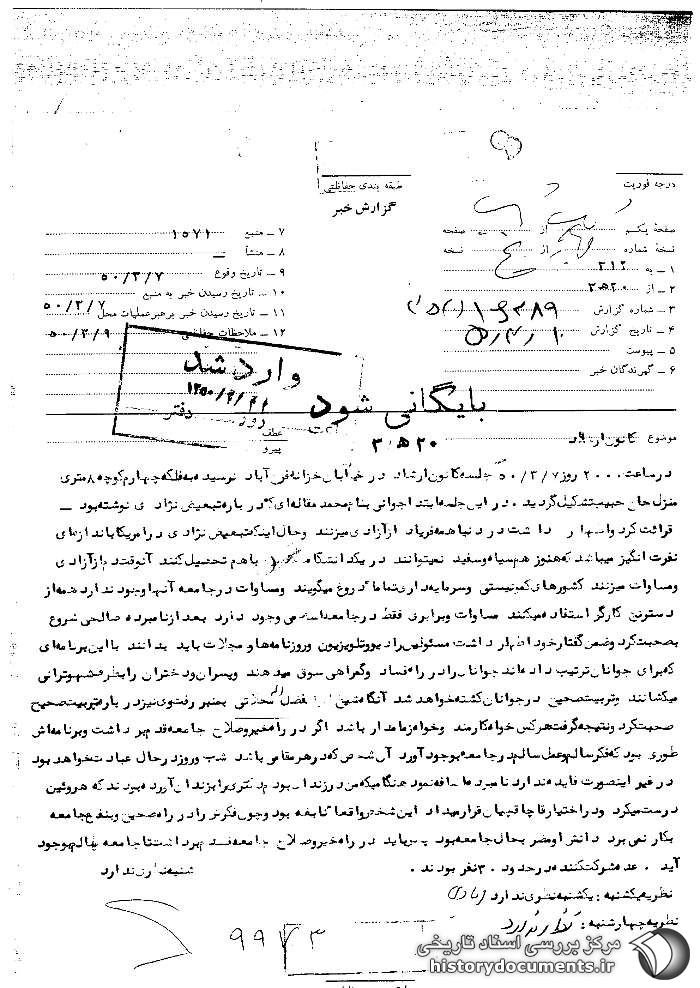 درجه فوریت
طبقه بندی حفاظتی
گزارش خبر
صفحهٔ یکم از صفحه
نسخهٔ شماره از نسخه
۱ – به ۳۱۲
۲ – از ۲۰ ه‍ ۳
۳ – شماره گزارش
۴ – تاریخ گزارش
۵ – پیوست
۶ – گیرندگان خبر
۷ – منبع ۱۵۷۱
۸ – منشأ
۹ – تاریخ وقوع ۵۰/۳/۷
۱۰ – تاریخ رسیدن خبر به منبع
۱۱ – تاریخ رسیدن خبر برهبر عملیات محل ۵۰/۳/۷
۱۲ – ملاحظات حفاظتی ۵۰/۳/۹
وارد شد
روز دفتر
بایگانی شود
موضوع کانون ارشاد
عطف
پیرو
۲۰ ه‍ ۳
در ساعت ۲۰۰۰ روز ۵۰/۳/۷ جلسه کانون ارشاد در خیابان خزانه فی آباد نرسیده به فلکه چهارم کوچه ۸ متری
منزل حاج حبیب تشکیل گردید . در این جلسه ابتدا جوانی بنام محمد مقاله‌ای که درباره تبعیض نژادی نوشته بود –
قرائت کرد و اظهار داشت در دنیا همه فریاد از آزادی میزنند و حال اینکه تبعیض نژادی در امریکا باندازه‌ای
نفرت انگیز میباشد که هنوز هم سیاه و سفید نمیتوانند در یک دانشگاه باهم تحصیل کنند آنوقت دم از آزادی
و مساوات میزنند کشورهای کمونیستی و سرمایه داری تماما دروغ میگویند و مساوات در جامعه آنها وجود ندارد همه از
دسترنج کارگر استفاده میکنند مساوات و برابری فقط در جامعه اسلامی وجود دارد بعد از نامبرده صالحی شروع
بصحبت کرد و ضمن گفتار خود اظهار داشت مسئولین رادیو و تلویزیون و روزنامه‌ها و مجلات باید بدانند با این برنامه‌ای
که برای جوانان ترتیب داده‌اند جوانان را در راه فساد و گمراهی سوق میدهند و پسران و دختران را بطرف شهوترانی
میکشانند و تربیت صحیح در جوانان کشته خواهد شد آنگاه شیخ فضل اله محلاتی بمنبر رفت وی نیز درباره تربیت صحیح
صحبت کرد و نتیجه گرفت هر کس خواه کارمند و خواه زمامدار باشد اگر در راه خیر و صلاح جامعه قدم برداشت و برنامه‌اش
طوری بود که فکر سالم و عمل سالم در جامعه بوجود آورد آن شخص که در هر مقامی باشد شب و روز در حال عبادت خواهد بود
در غیر اینصورت فایده ندارد نامبرده اضافه نمود هنگامیکه من در زندان بودم دکتری را بزندان آورده بودند که هروئین
درست میکرد و در اختیار قاچاقچیان قرار میداد این شخص واقعا نابغه بود و چون فکرش را در راه صحیح و بنفع جامعه
بکار نمی برد دانش او مضر بحال جامعه بود پس باید در راه خیر و صلاح جامعه قدم برداشت تا جامعه سالم بوجود
آید . عده شرکت کننده در حدود ۳۰ نفر بودند .
نظریه یکشنبه : یکشنبه نظری ندارد
نظریه چهارشنبه :
۹۹۲۷۳
مرکز بررسی اسناد تاریخی
historydocuments.ir